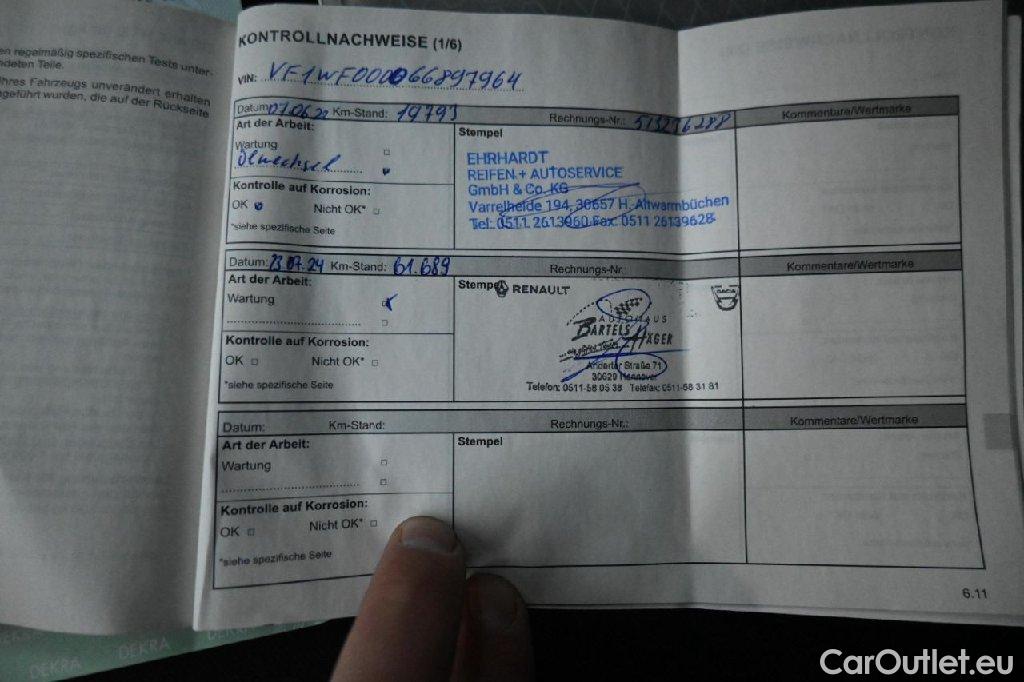 en regelmäßig spezifischen Tests unter-
ndeten Teile.
Ihres Fahrzeugs unverändert erhalten
ngeführt wurden, die auf der Rückseite
KONTROLLNACHWEISE (1/6)
VIN: VF1WF000066897964
Datum: 07.06.22 Km-Stand: 19793 Rechnungs-Nr.: 513276288 Kommentare/Wertmarke
Art der Arbeit:
Wartung
Ölwechsel
Kontrolle auf Korrosion:
OK Nicht OK*
*siehe spezifische Seite
Stempel
EHRHARDT
REIFEN + AUTOSERVICE
GmbH & Co. KG
Varrelheide 194, 30657 H.-Altwarmbüchen
Tel.: 0511 2613960 Fax: 0511 26139628
Datum: 23.07.24 Km-Stand: 61.689 Rechnungs-Nr.: Kommentare/Wertmarke
Art der Arbeit:
Wartung
Kontrolle auf Korrosion:
OK Nicht OK*
*siehe spezifische Seite
Stempel
RENAULT
DACIA
AUTOHAUS
BARTELS
HÄGER
Anderter Straße 71
30629 Hannover
Telefon: 0511-58 05 38 Telefax: 0511-58 31 81
Datum: Km-Stand: Rechnungs-Nr.: Kommentare/Wertmarke
Art der Arbeit:
Wartung
Kontrolle auf Korrosion:
OK Nicht OK*
*siehe spezifische Seite
Stempel
6.11
DEKRA DEKRA DEKRA
CarOutlet.eu